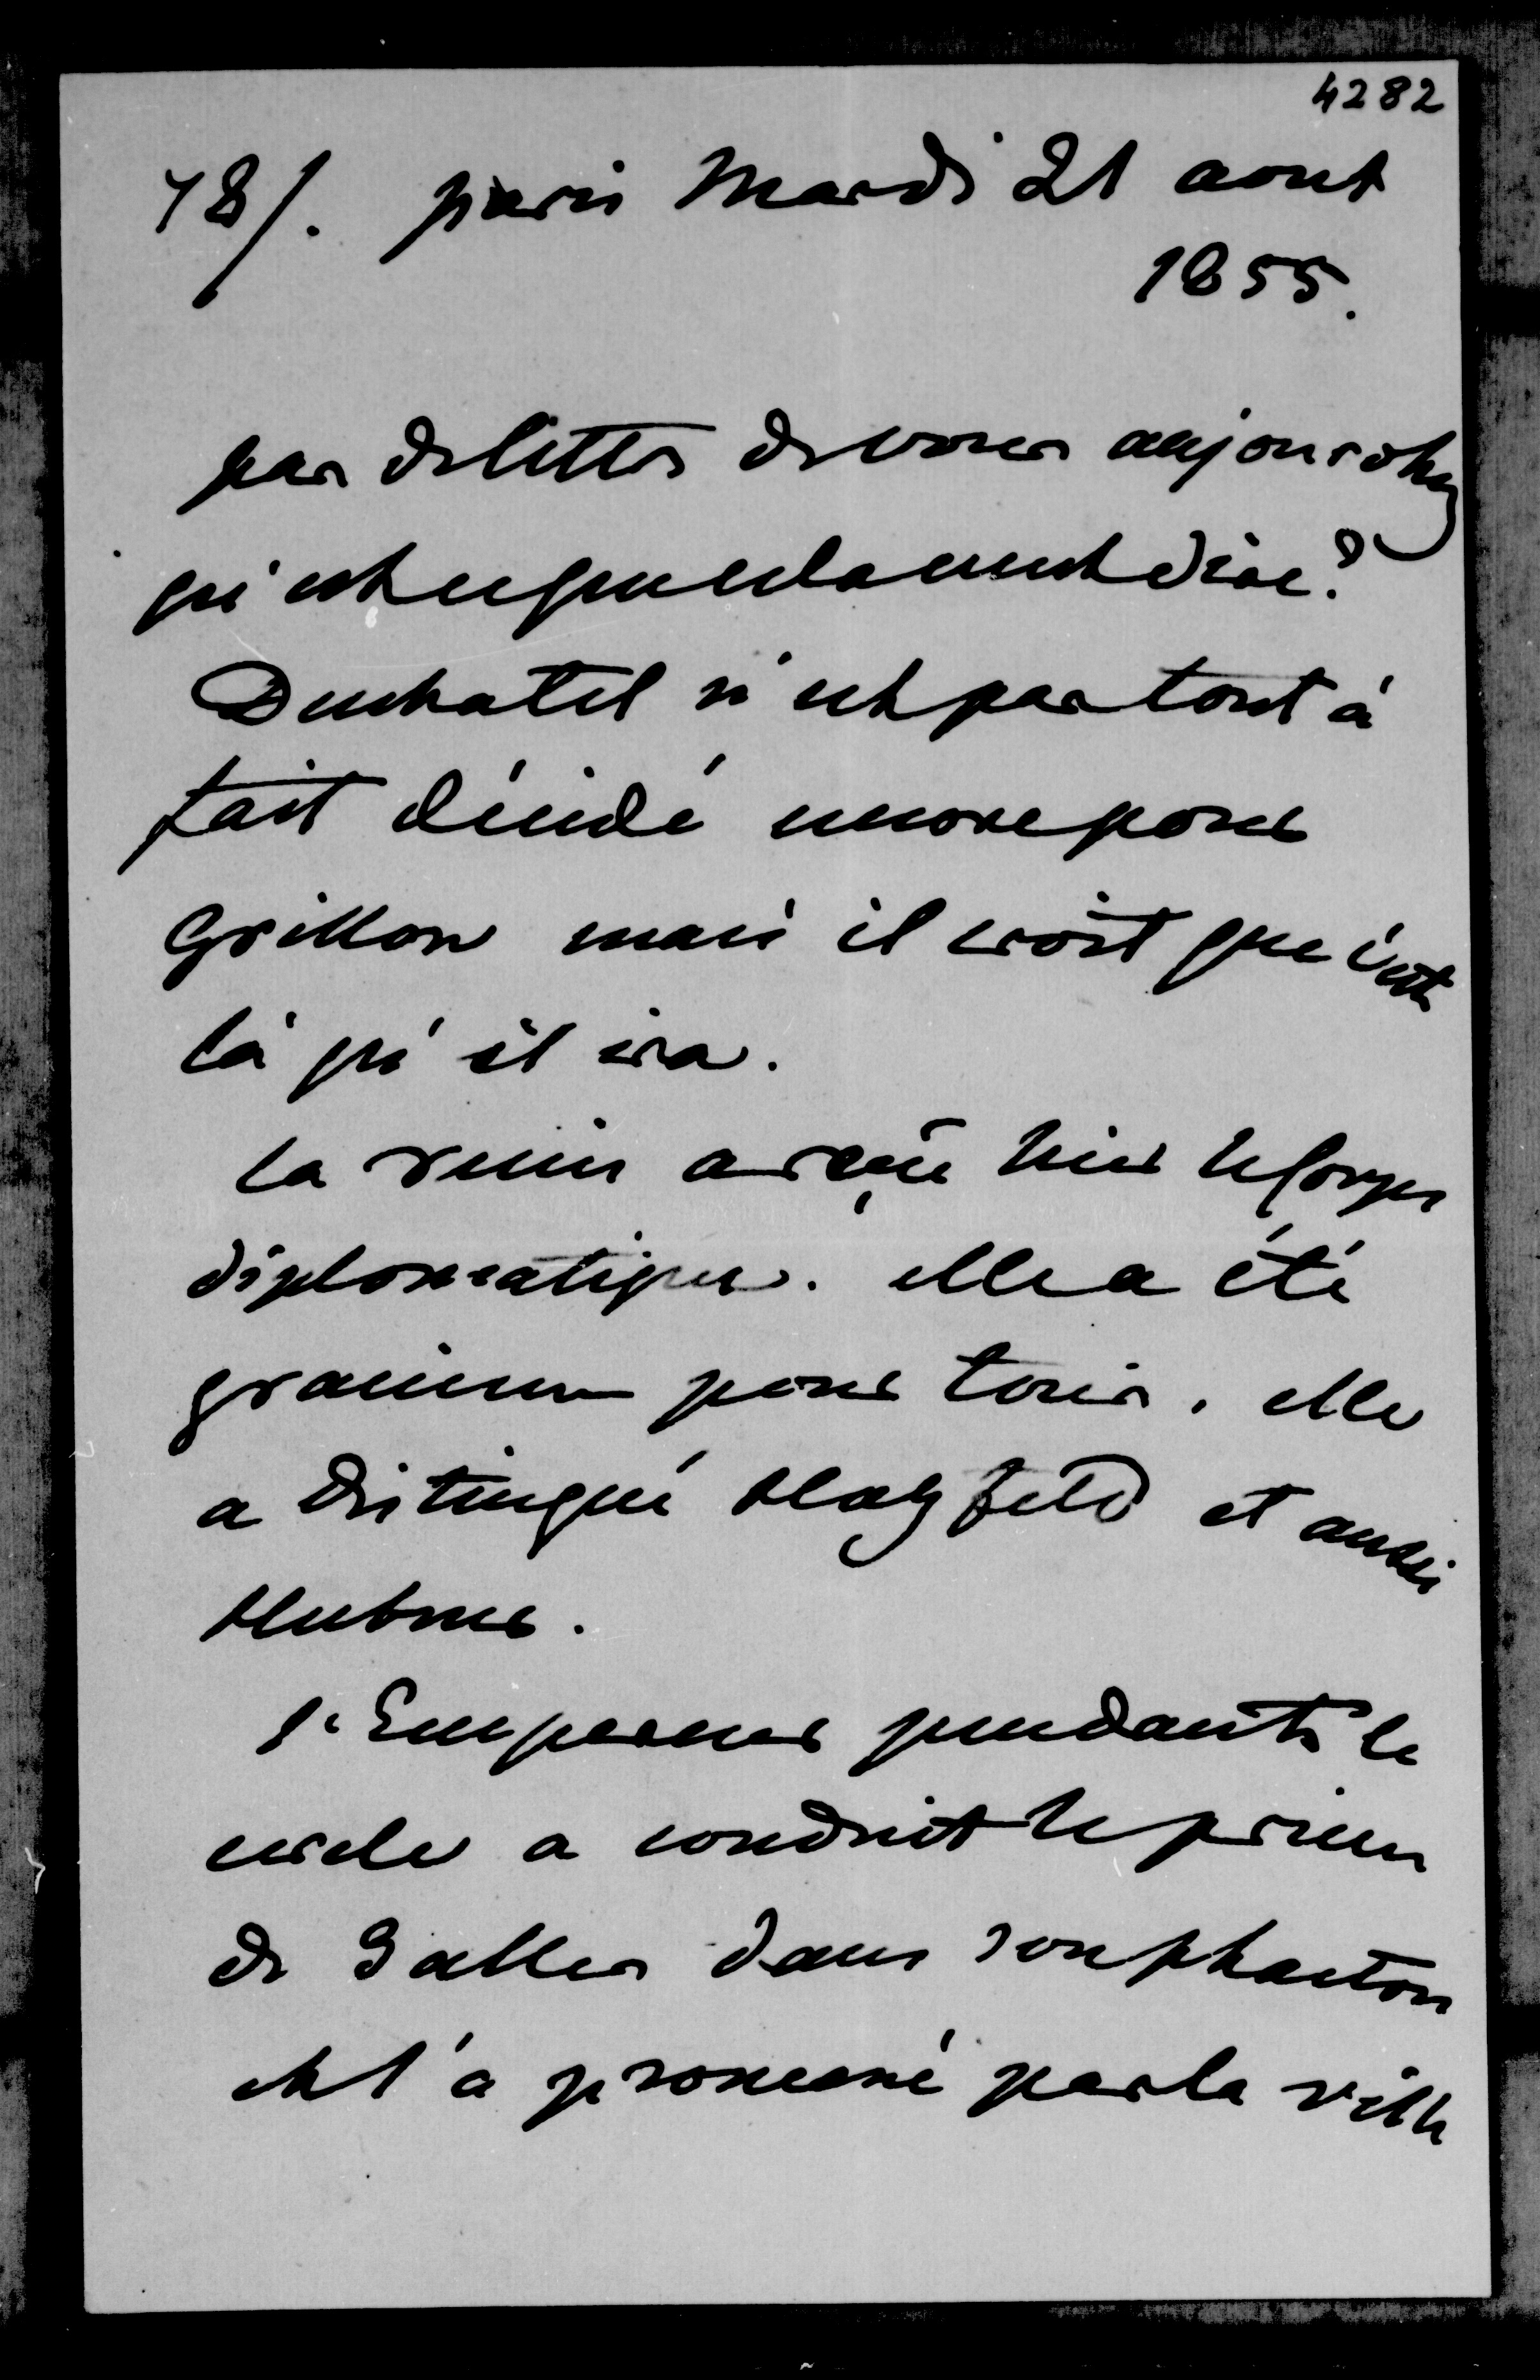 4282
78/. paris Mardi 21 aout
1855.
pas de lettre de vous aujourd'huy
qu'est ce que cela veut dire?
Duchatel n'est pas tout à
fait décidé encore pour
Grillon mais il croit que c'est
là qu'il ira.
la reine a reçu hier le Corps
diplomatique. elle a été
gracieuse pour tous. elle
a distingué Hatzfeld et aussi
Hubner.
l'Empereur pendant le
cercle a conduit le prince
de Galles dans son phaeton
et l'a promené par la ville